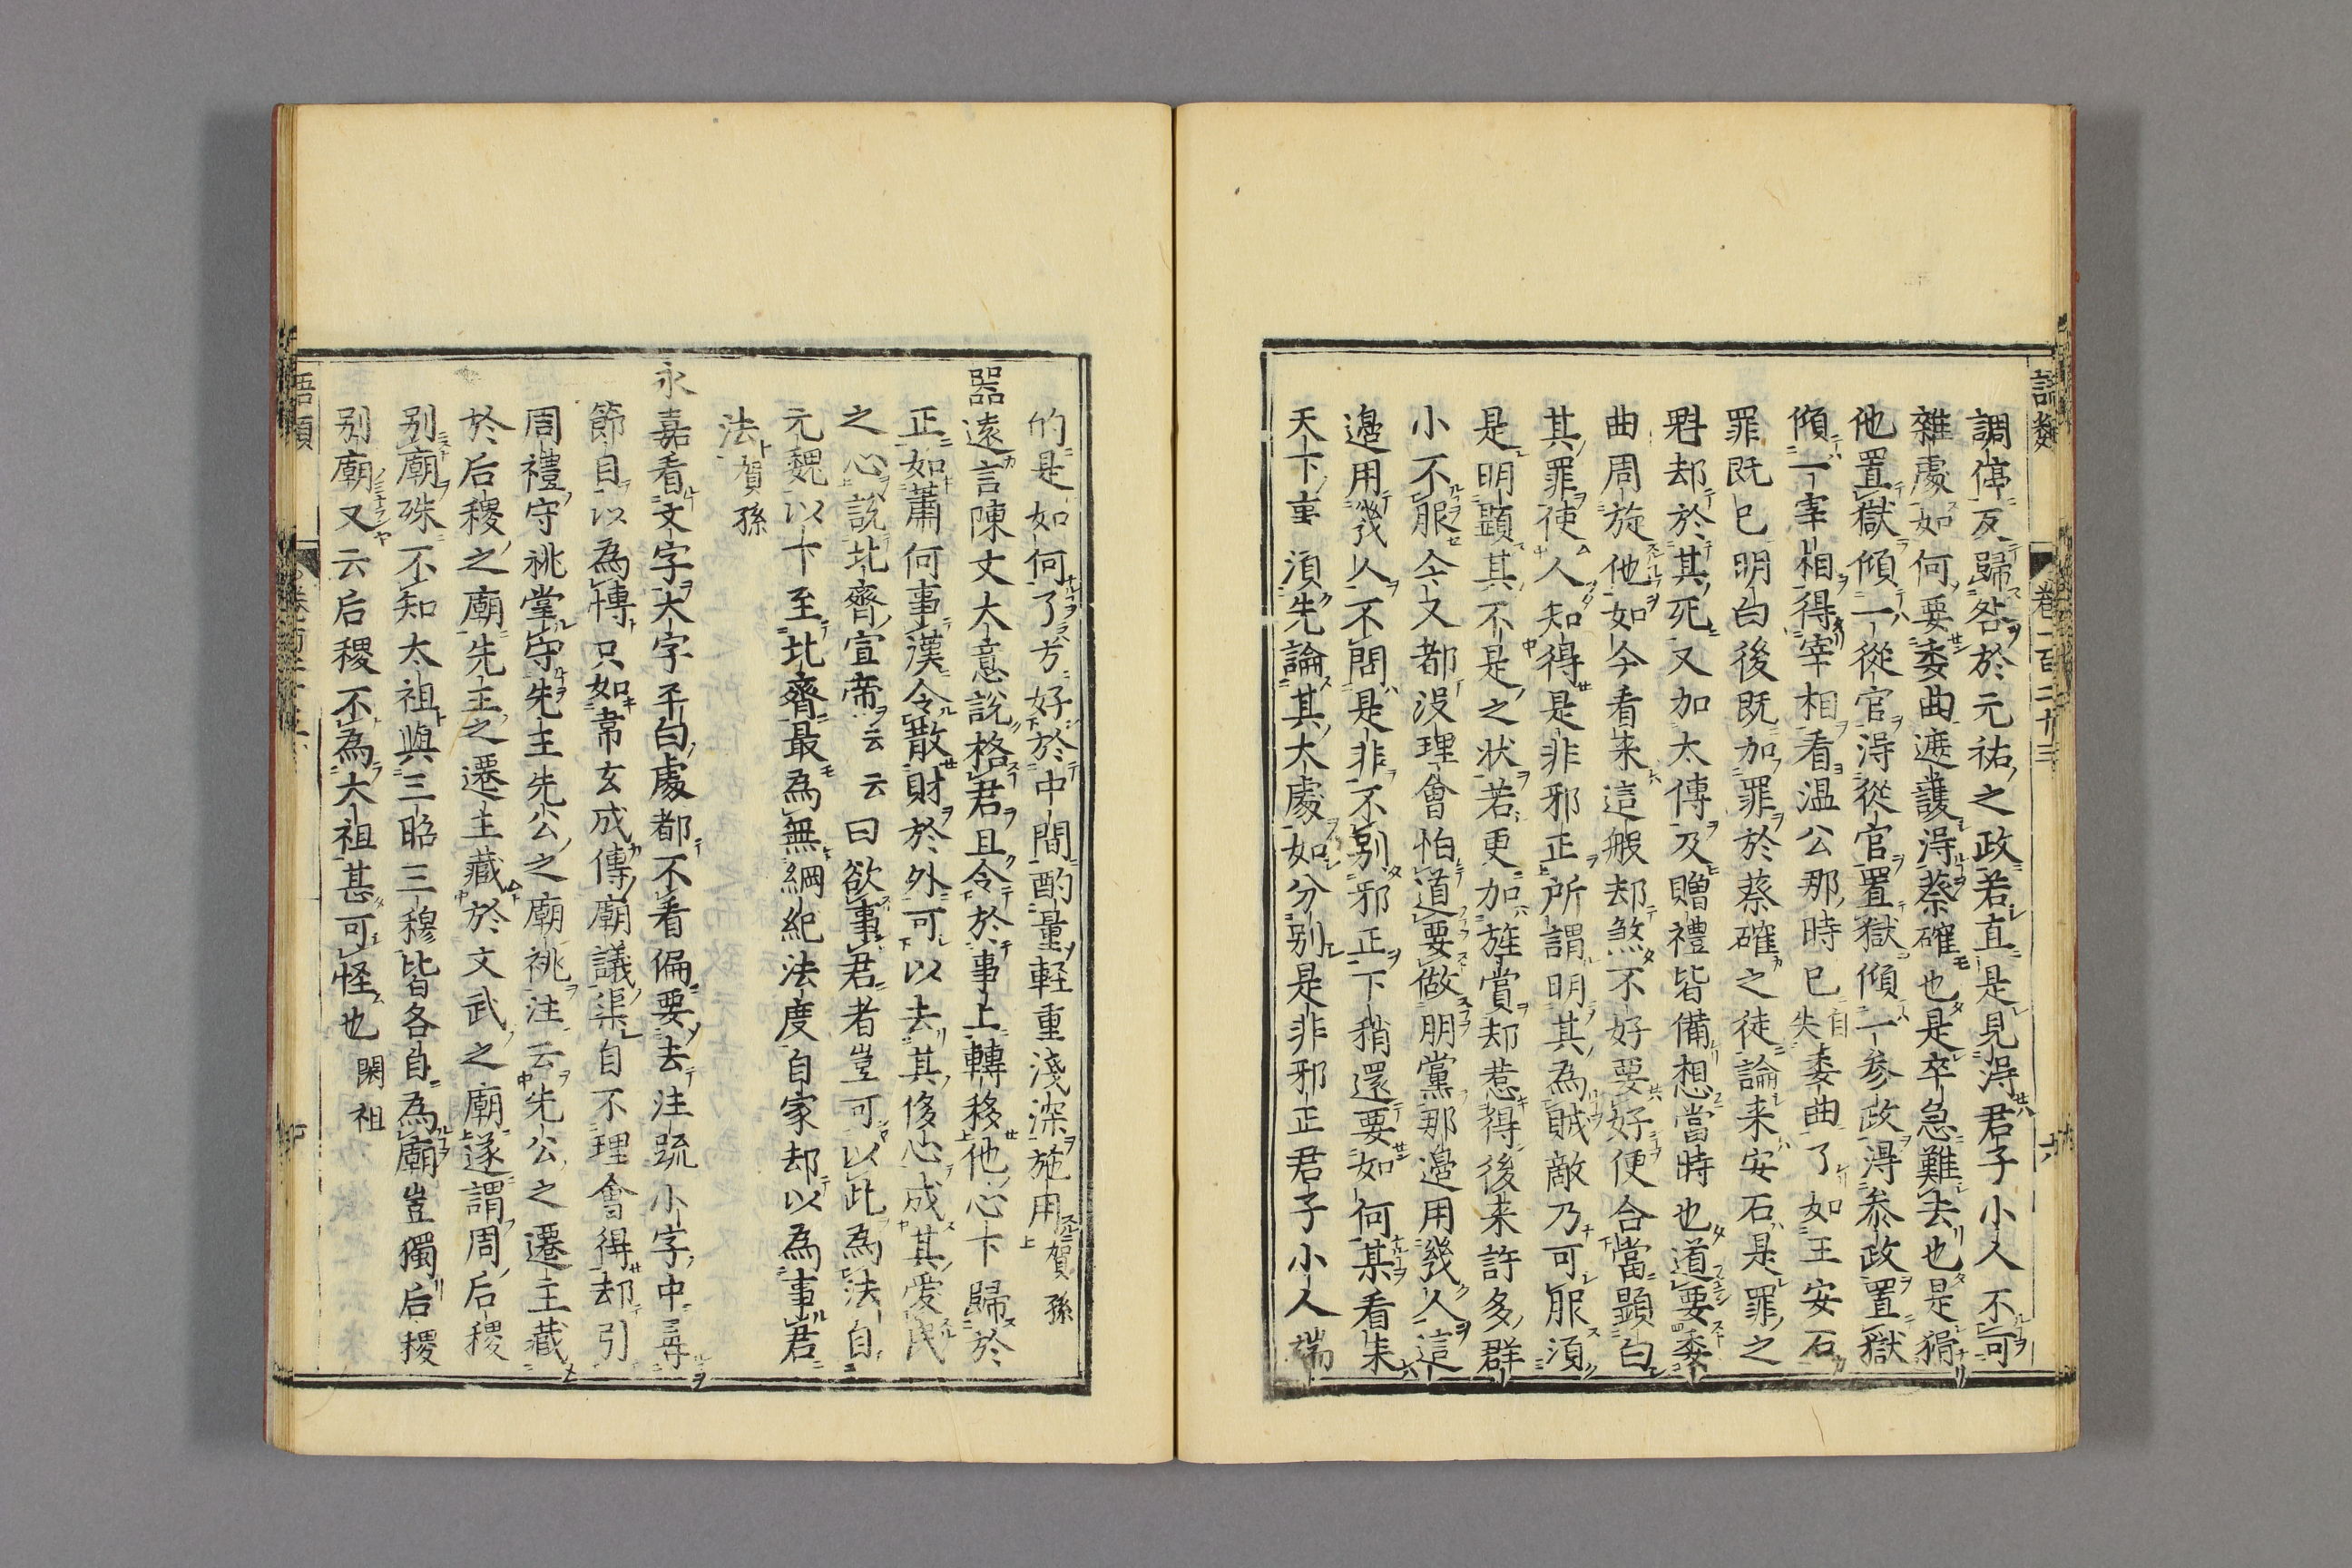 語類 卷一百二十三 十六
調停反歸咎於元祐之政若直是見淂君子小人不可
雜處如何要委曲遮護淂蔡確也是卒急難去也是猾
他置獄傾一從官淂從官置獄傾一參政淂參政置獄
傾一宰相得宰相看温公那時已自失委曲了如王安石
罪既已明白後既加罪於蔡確之徒論来安石是罪之
魁却於其死又加太傳及贈禮皆備想當時也道要委
曲周旋他如今看来這般却煞不好要好便合當顯白
其罪使人知得是非邪正所謂明其為賊敵乃可服須
是明顯其不是之状若更加旌賞却惹得後来許多群
小不服今又都没理會怕道要做朋黨那邉用幾人這
邉用幾人不問是非不别邪正下稍還要如何某看来
天下事須先論其大處如分别是非邪正君子小人端
的是如何了方好於中間酌量軽重淺深施用賀孫
器遠言陳丈大意說格君且令於事上轉移他心下歸於
正如蕭何事漢令散財於外可以去其侈心成其愛民
之心說北齊宣帝云云曰欲事君者豈可以此為法自
元魏以下至北齊最為無綱紀法度自家却以為事君
法賀孫
永嘉看文字大字平白處都不看偏要去注疏小字中尋
節目以為博只如韋玄成傳廟議渠自不理會得却引
周禮守祧掌守先王先公之廟祧注云先公之遷主藏
於后稷之廟先主之遷主藏於文武之廟遂謂周后稷
别廟殊不知太祖與三昭三穆皆各自為廟豈獨后稷
别廟又云后稷不為大祖甚可怪也 閎祖
語類